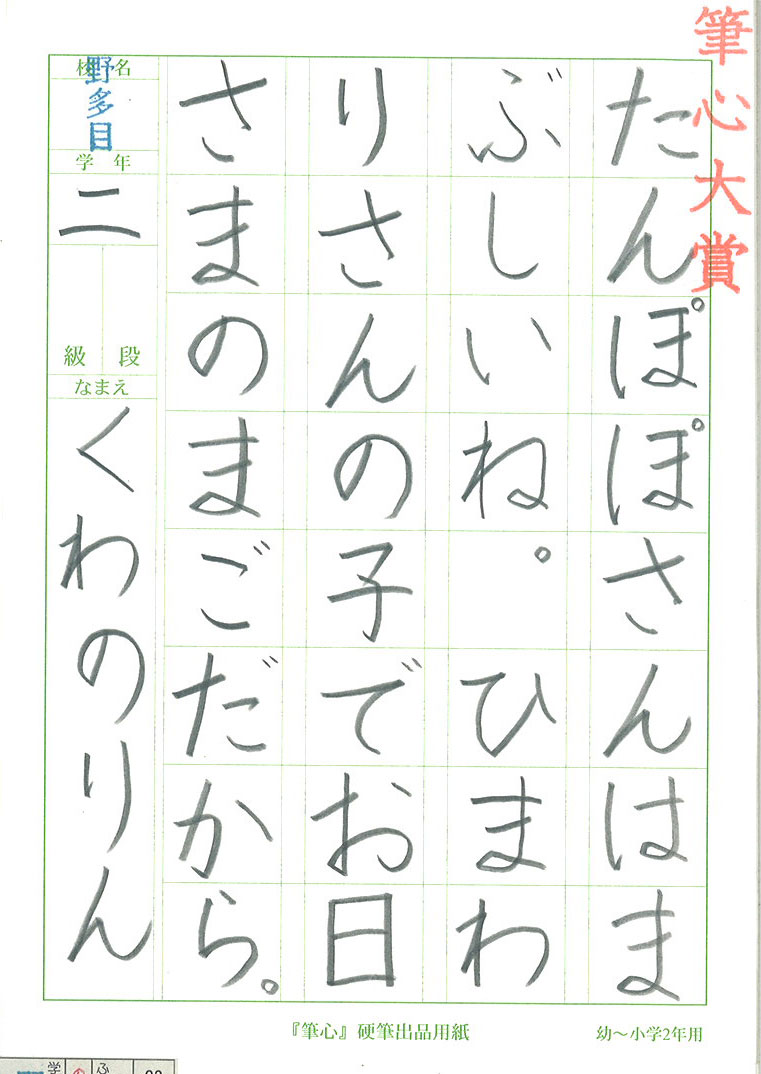 筆心大賞
たんぽぽさんはま
ぶしいね。ひまわ
りさんの子でお日
さまのまごだから。
校名
野多目
学年
二
段
級
なまえ
くわのりん
『筆心』硬筆出品用紙
幼〜小学2年用